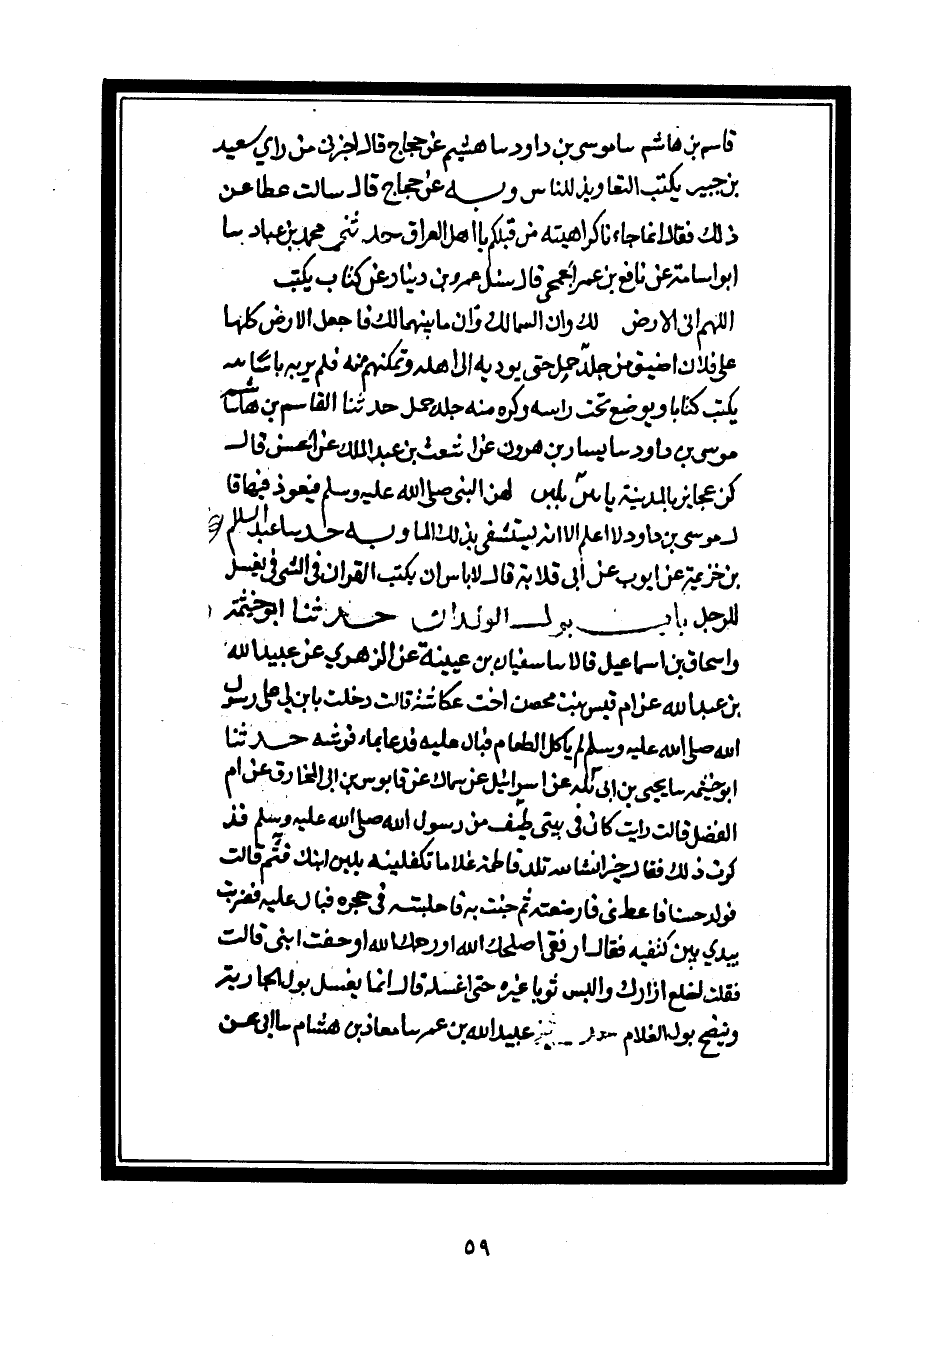 قاسم بن هاشم سا موسى بن داود سا هشيم عن حجاج قال اخبرنى من راى سعيد
بن جبير يكتب التعاويذ للناس وبه عن حجاج قال سالت عطا عن
ذلك فقال انما جاءنا كراهيته من قبلكم يا اهل العراق حدثنى محمد بن عباد سا
ابو اسامة عن نافع بن عمر الجمحى قال سئل عمرو بن دينار عن كتاب يكتب
اللهم انى الارض لك وان السما لك وان ما بينهما لك فاجعل الارض كلها
على فلان اضيق من جلد حمل حتى يوديه الى اهله وتمكنهم منه فلم ير به باسا
يكتب كتابا ويوضع تحت راسه وكره منه جلد حمل حدثنا القاسم بن هاشم
موسى بن داود سا يسار بن هرون عن اشعث بن عبد الملك عن الحسن قال
كن عجايز بالمدينة لهن النبى صلى الله عليه وسلم فيعوذ فيها قا
ل موسى بن داود لا اعلم الا انه ليستشفى بذلك الما وبه حدثنا عبد السلم
بن خزيمة عن ايوب عن أبى قلابة قال لا باس ان يكتب القران فى الشى فى يغسل
للرجل باب بول الولدان حدثنا ابو خيثمة
واسحاق بن اسماعيل قالا سا سفيان بن عيينة عن الزهرى عن عبيد الله
بن عبد الله عن ام قيس بنت محصن اخت عكاشة قالت دخلت بابن لى على رسول
الله صلى الله عليه وسلم لم ياكل الطعام فبال عليه فدعا بماء فرشه حدثنا
ابو خيثمه سا يحيى بن ابى بكير عن اسرائيل عن سماك عن قابوس بن ابى المخارق عن ام
الفضل قالت رايت كان فى بيتى طيف من رسول الله صلى الله عليه وسلم فذ
كرت ذلك فقال خير انشا الله تلد فاطمة غلاما تكفلينه بلبن ابنك قثم قالت
فولد حسنا فاعطى فارضعته ثم جئت به فاجلسته فى حجره فبال عليه فضربت
بيدى بين كتفيه فقال ارفقى اصلحك الله او رحمك الله اوجعت ابنى قالت
فقلت اخلع ازارك والبس ثوبا غيره حتى اغسله قال انما يغسل بول الجارية
وينضح بول الغلام عبيد الله بن عمر سا معاذ بن هشام سا ابى عن
٥٩